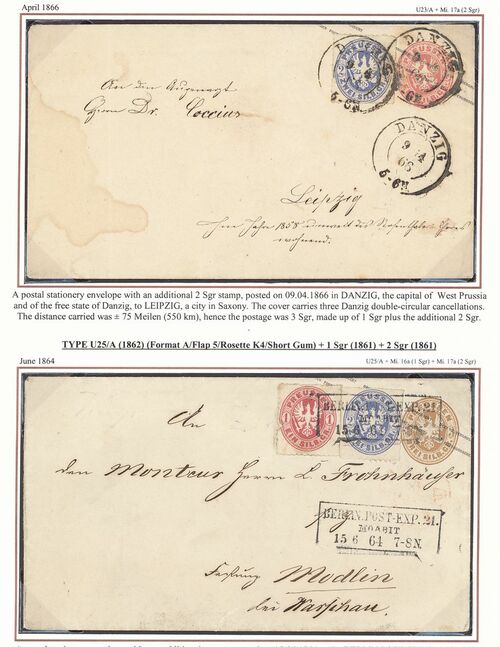 April 1866
U23/A + Mi. 17a (2 Sgr)
DANZIG
DANZIG
5-6N
An den Augenarzt
Herrn Dr. Coccius
DANZIG
9 4
66
5-6N
Leipzig
Im Jahr 1858 unweit des
wohnend.
A postal stationery envelope with an additional 2 Sgr stamp, posted on 09.04.1866 in DANZIG, the capital of West Prussia
and of the free state of Danzig, to LEIPZIG, a city in Saxony. The cover carries three Danzig double-circular cancellations.
The distance carried was ± 75 Meilen (550 km), hence the postage was 3 Sgr, made up of 1 Sgr plus the additional 2 Sgr.
TYPE U25/A (1862) (Format A/Flap 5/Rosette K4/Short Gum) + 1 Sgr (1861) + 2 Sgr (1861)
June 1864
U25/A + Mi. 16a (1 Sgr) + Mi. 17a (2 Sgr)
PREUSSEN
EIN SILB.GR.
BERLIN.POST-EXP.21.
MOABIT
15 6 64
An
den Monteur Herrn L. Frohnhäuser
BERLIN.POST-EXP.21.
MOABIT
15 6 64 7-8N.
Festung Modlin
bei Warschau.